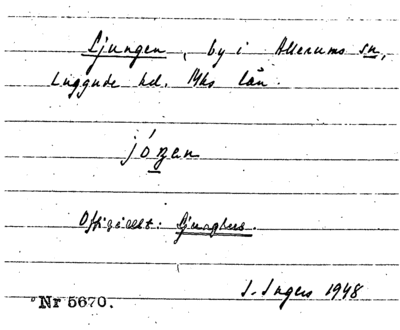 Ljungen, by i Allerums sn,
Luggude hd. Mhs län.
jóṉen
Officiellt: Ljunghus.
I. Ingers 1948
Nr 5670.